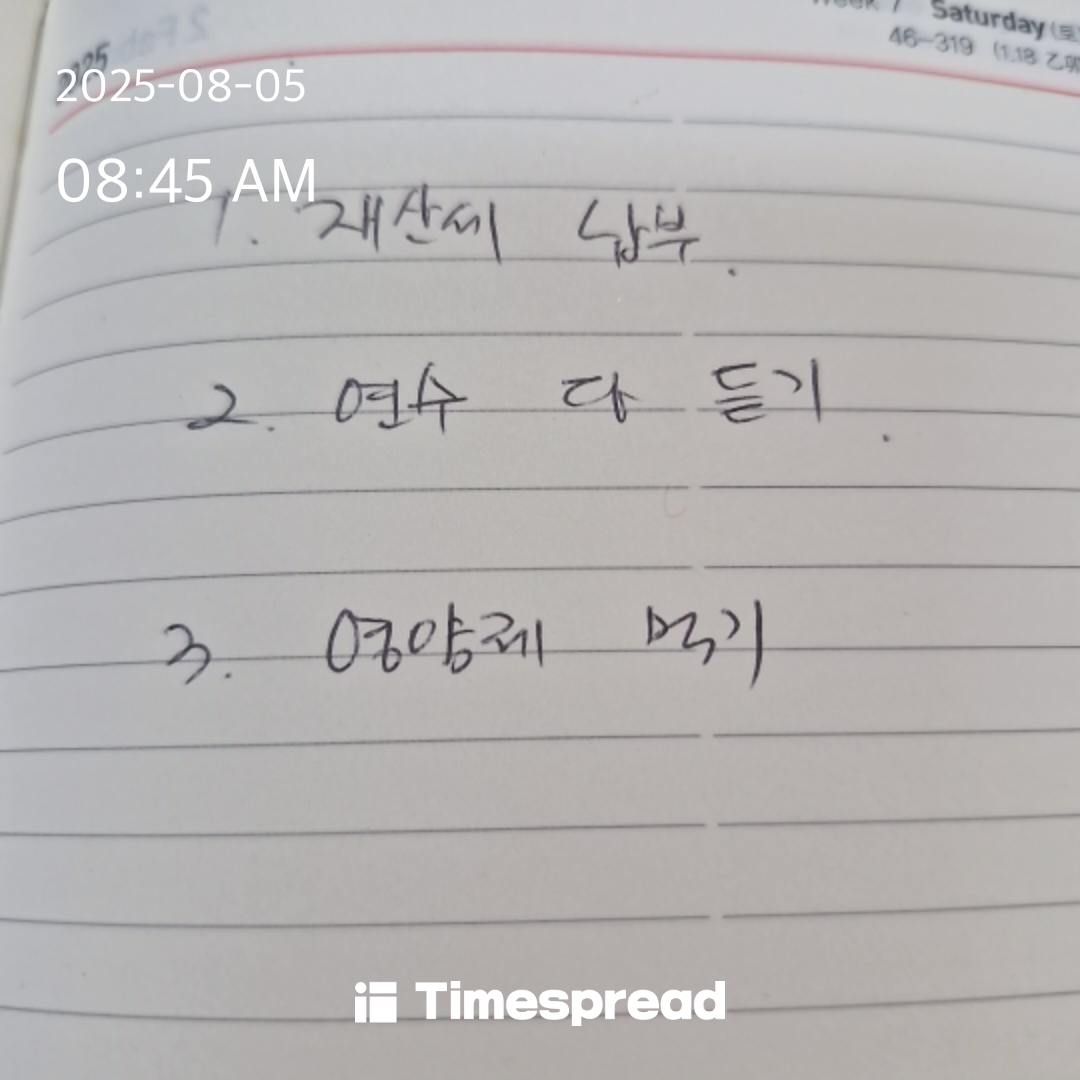 Saturday(토)
46-319 (1.18 乙卯
2025
2025-08-05
08:45 AM
1. 재산세 납부.
2. 연수 다 듣기.
3. 영양제 먹기
Timespread